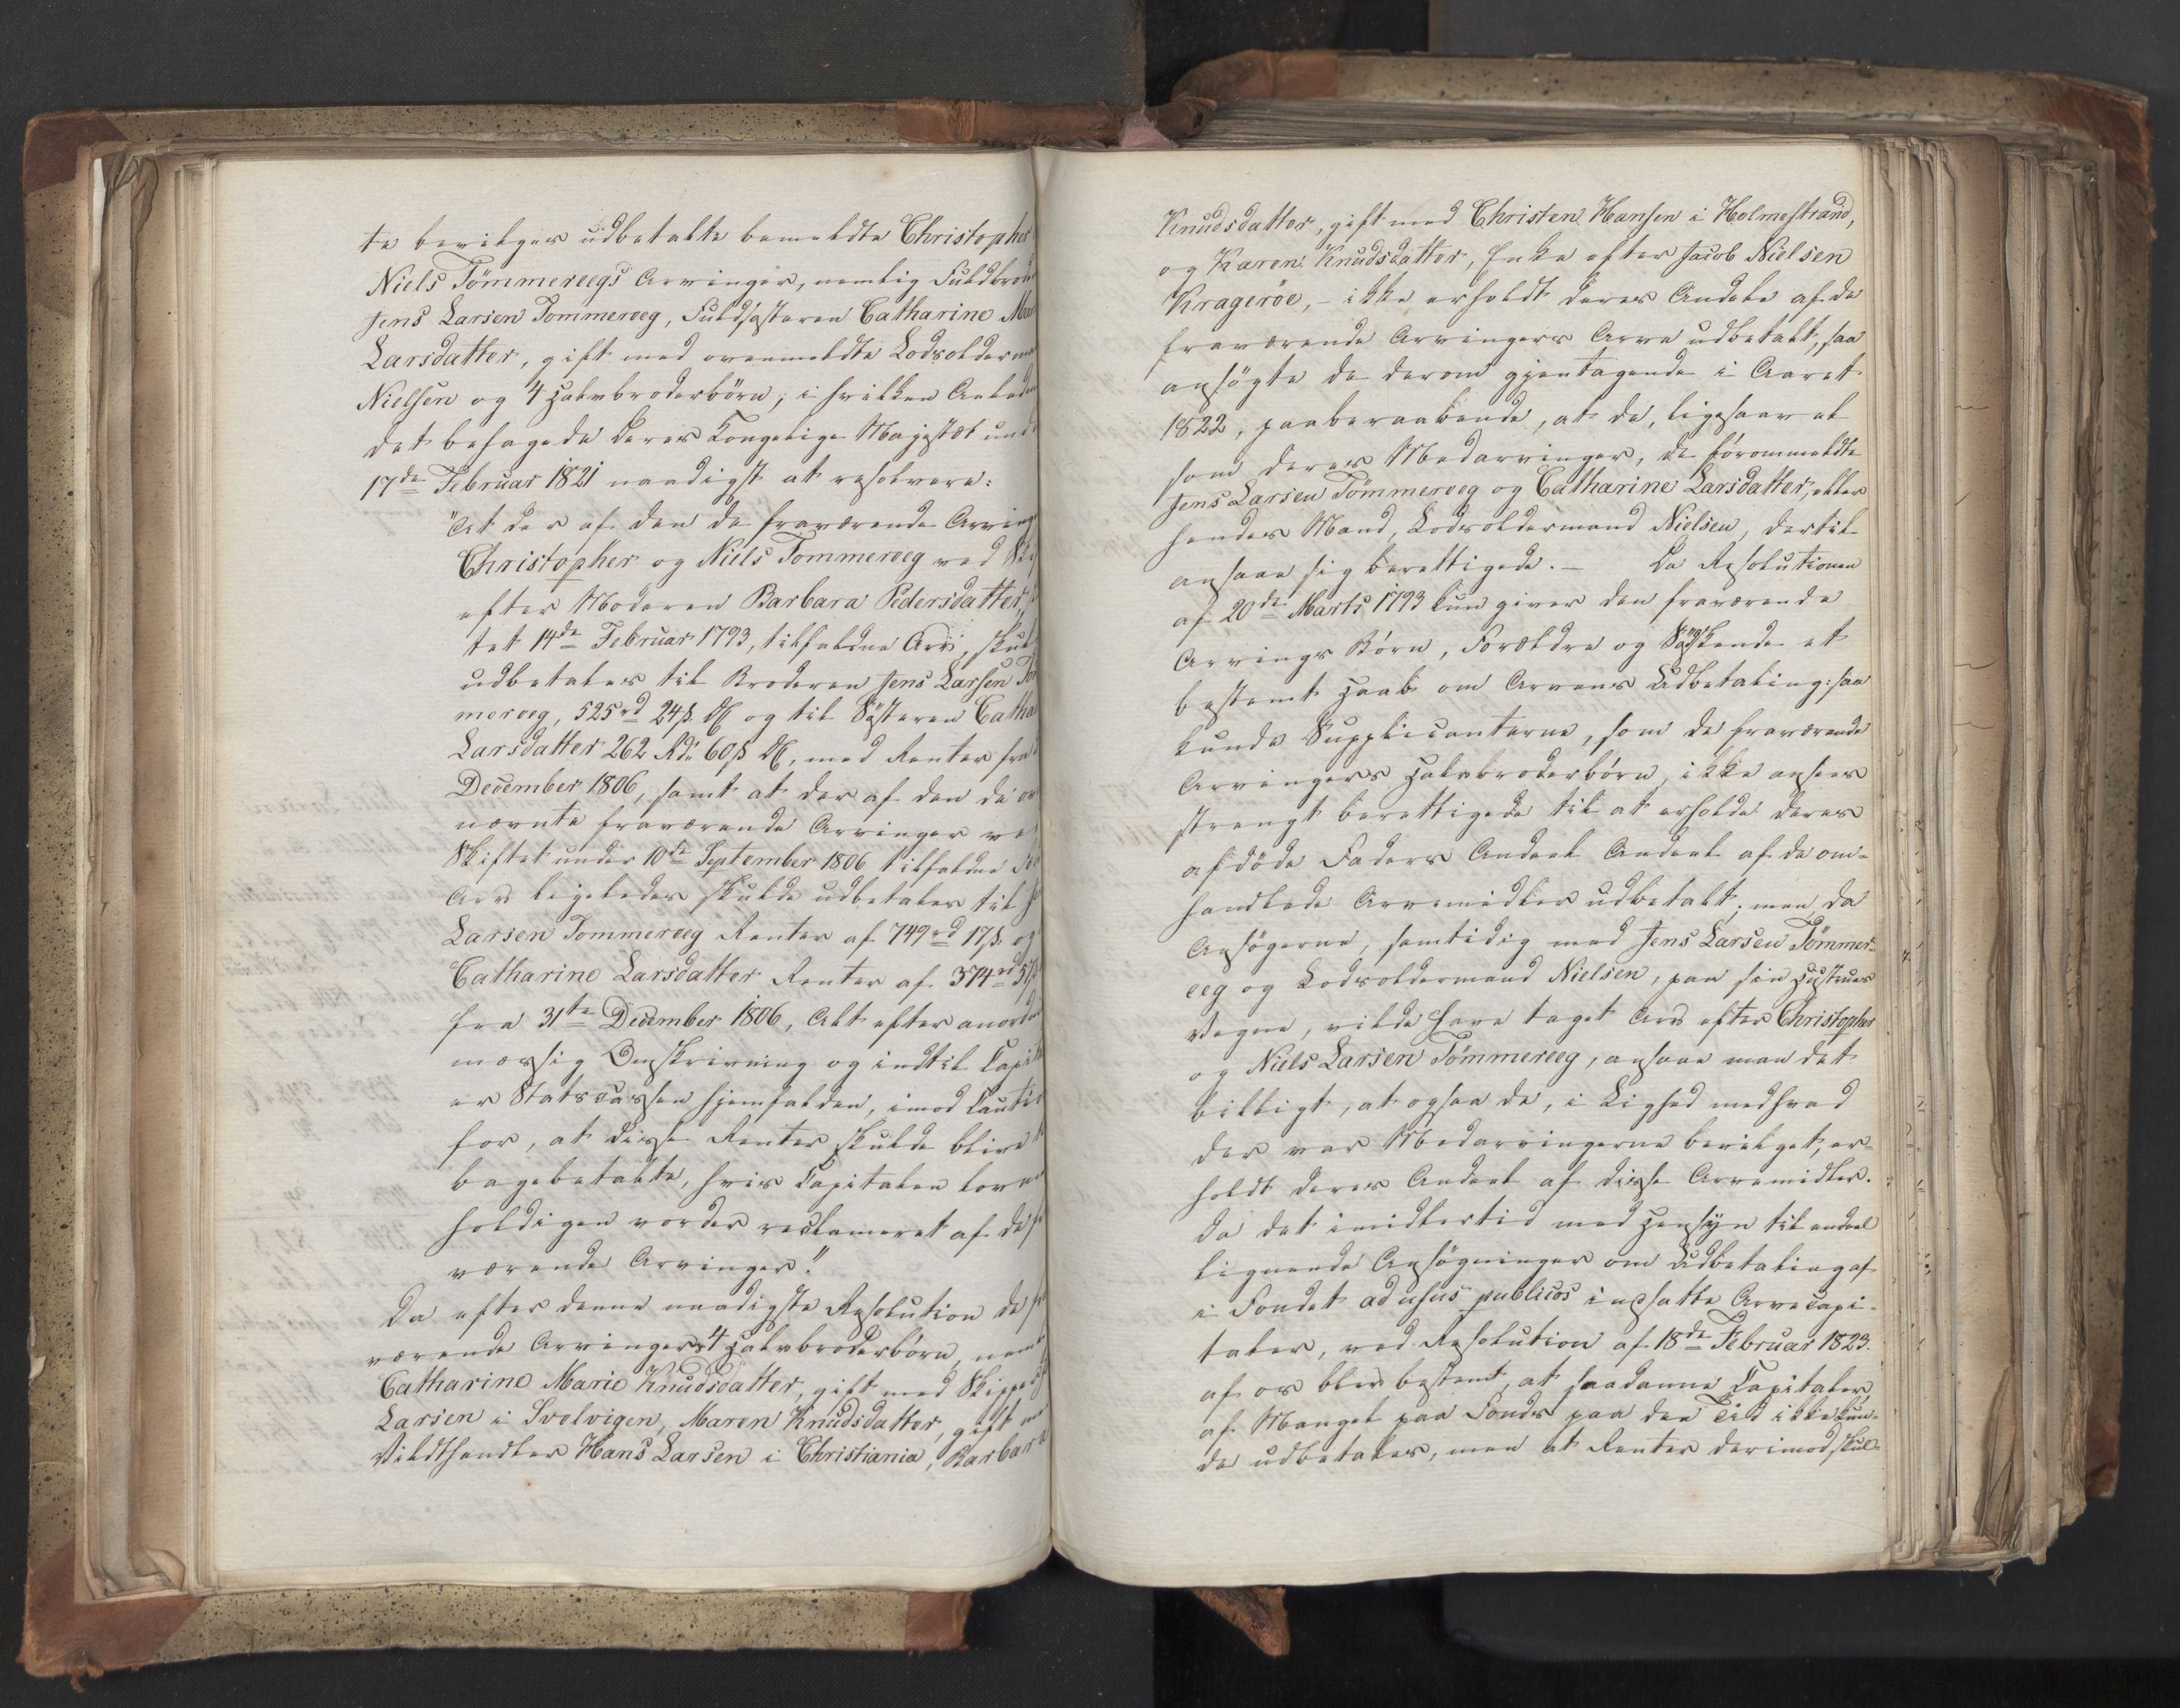 te bevilges udbetalte bemeldte Christopher
Niels Tömmereegs Arvinger, nemlig Fuldbrode
Jens Larsen Tommereeg, Fuldsösteren Catharine Mar
Larsdatter, gift med ovenmeldte Lodsolderma
Nielsen og 4 Halvbroderbörn; i hvilken Anledn
det behagede Deres Kongelige Majestæt und
17de Februar 1821 naadigst at resolvere:
"At der af den de fraværende Arving
Christopher og Niels Tommereeg ved
efter Moderen Barbara Pedersdatter,
tet 14de Februar 1793, tilfaldne Arv, skul
udbetales til Broderen Jens Larsen Töm
mereeg, 525rd 24ß. og til Sösteren Catha
Larsdatter 262 Rd. 60ß, med Renter fra
December 1806, samt at der af den de ov
nævnte fraværende Arvinger ve
Skiftet under 10de September 1806 tilfaldne
Arv ligeledes skulde udbetales til Je
Larsen Tommereeg Renter af 749rd 17ß. og
Catharine Larsdatter Renter af 374rd 57ß
fra 31te December 1806, Alt efter anord
mæssig Omskrivning og indtil Capit
er Statscassen hjemfalden, imod Cauti
for, at disse Renter skulde blive t
bagebetalte, hvis Capitalen lovm
holdigen vorder reclameret af de f
værende Arvinger."
Da efter denne naadigste Resolution de fr
værende Arvingers 4 Halvbroderbörn, neml
Catharine Marie Knudsdatter, gift med Skippe
Larsen i Svelvigen, Maren Knudsdatter, gift m
Vildthandler Hans Larsen i Christiania, Barbara
Knudsdatter, gift med Christen Hansen i Holmestrand,
og Karen Knudsdatter, Enke efter Jacob Nielsen
Krageröe, - ikke erholdt deres Andele af de
fraværende Arvingers Arve udbetalt, saa
ansögte de derom gjentagende i Aaret
1822, paaberaabende, at de, ligesaavel
som deres Medarvinger, de forommeldte
Jens Larsen Tömmereeg og Catharine Larsdatter, eller
hendes Mand, Lodsoldermand Nielsen, dertil
ansaae sig berettigede. – Da Resolutionen
af 20de Marts 1793 kun giver den fraværende
Arvings Börn, Forældre og Södskende et
bestemt Haab om Arvens Udbetaling: saa
kunde Supplicanterne, som de fraværende
Arvingers Halvbroderbörn, ikke ansees
strengt berettigede til at erholde deres
afdöde Faders Andeel Andeel af de om-
handlede Arvemidler udbetalt; men da
Ansögerne, samtidig med Jens Larsen Tömmer-
eeg og Lodsoldermand Nielsen, paa sin Hustrues
Vegne, vilde have taget Arv efter Christopher
og Niels Larsen Tömmereeg, ansaae man det
billigt, at ogsaa de, i Lighed med hvad
der var Medarvingerne bevilget, er-
holdt deres Andeel af disse Arvemidler.
Da det imidlertid med Hensyn til endeel
lignende Ansögninger om Udbetaling af
i Fondet ad usus publicos indsatte Arvecapi-
taler, ved Resolution af 18de Februar 1823.
af os blev bestemt, at saadanne Capitaler
af Mangel paa Fonds paa den Tid ikke kun-
de udbetales, men at Renter derimod skul-